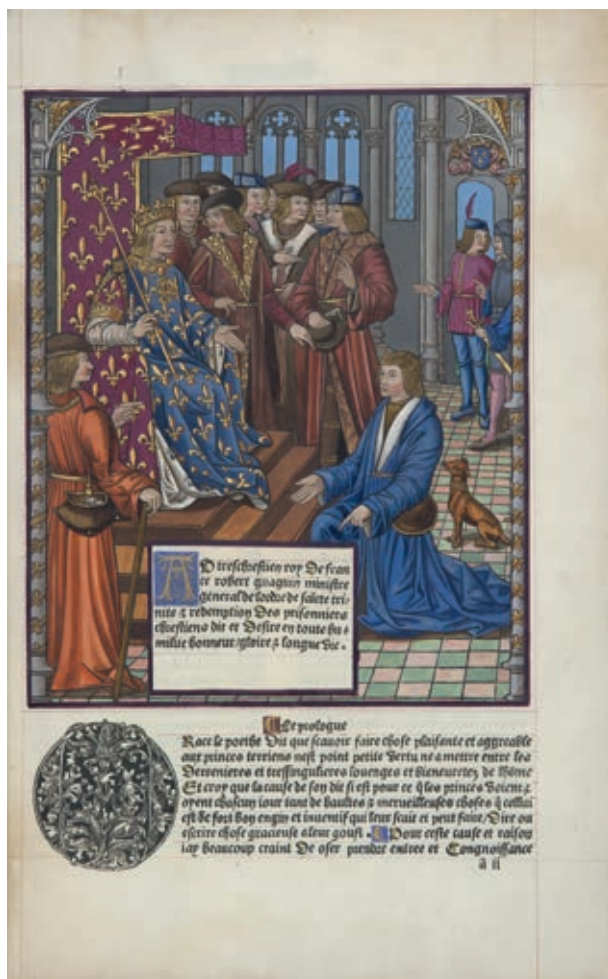 AU treschrestien roy De fran
ce robert guaguin ministre
general de lordre de saicte tri-
nite & redemption Des prisonniers
chrestiens dit et Desire en toute hu-
milite honneur gloire & longue vie.
Le prologue
Race le poethe Dit que scauoir faire chose plaisante et aggreable
aux princes terriens nest point petite Vertu ne a mettre entre les
Derrenieres et tressingulieres louenges et bieneuretez de lhõme
Et croy que la cause de son dit si est pour ce q̃ les princes Voient &
oyent chascun iour tant de haultes & merueilleuses choses q̃ cellui
est de fort bon engin et inuentif qui leur scait et peut faire/Dire ou
escrire chose gracieuse a leur goust. Pour ceste cause et raison
iay beaucoup craint De oser prendre entree et Congnoissance
a ii